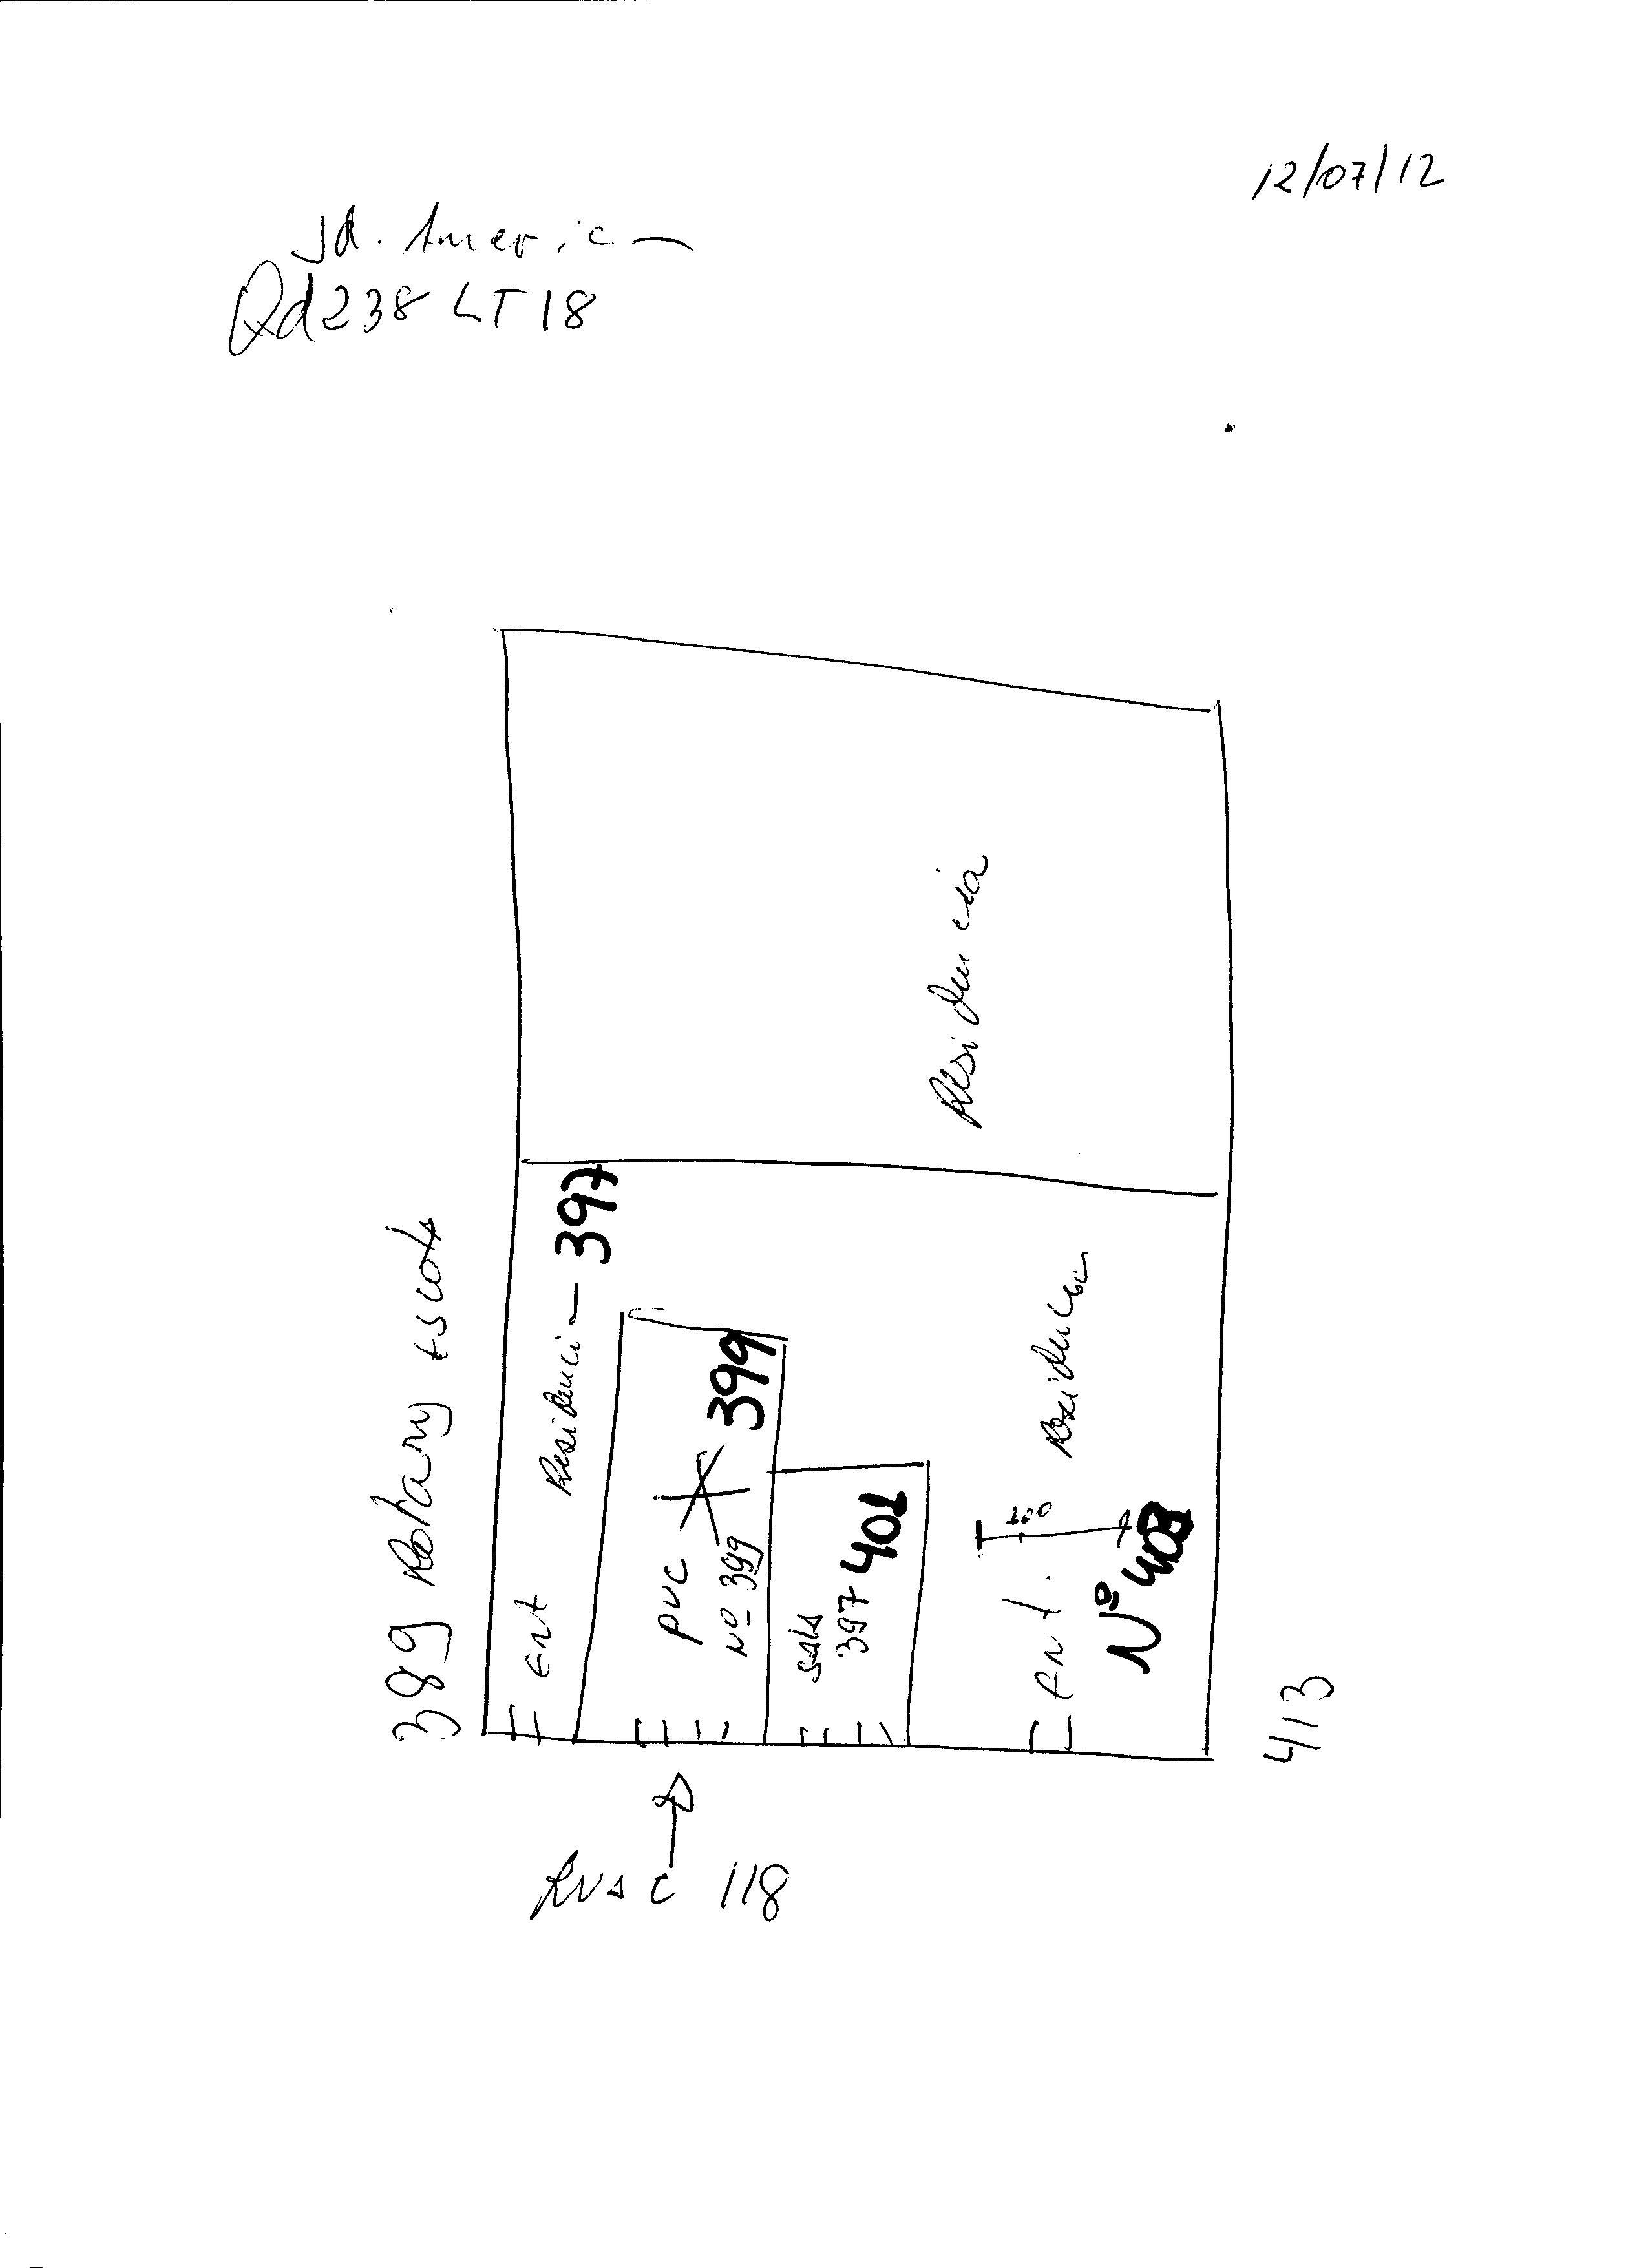 12/07/12
Jd. America
Qd 238 LT 18
389 Rotary escola
Ent
Residenci - 397
PVC
Nº 399
399
Sala
397 401
Ent.
100
Residencia
Nº 403
Residencia
413
Rua C 118